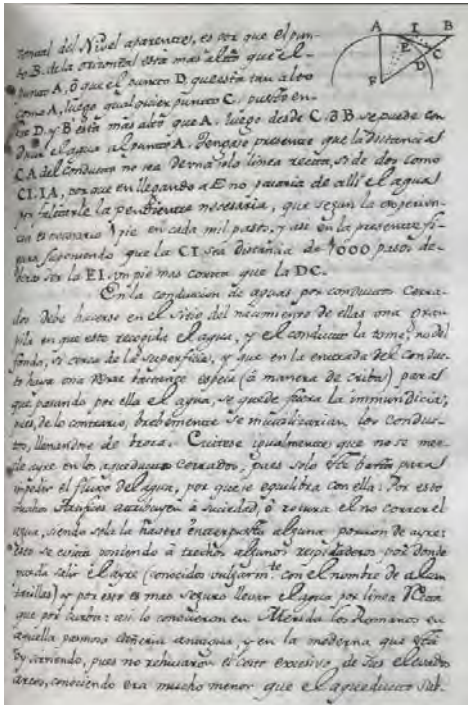 A I B
E C
D
F
zontal del Nivel aparente, es por que el pun-
to B. de la orizontal esta mas alto que el
punto A, ò que el punto D que esta tan alto
como A, luego qualquier punto C. puesto en-
tre D. y B esta mas alto que A. luego desde C. B se puede con-
ducir el agua al punto A. Tengase presente que la distancia
CA del conducto no sea de una sola linea recta, si de dos como
CI. IA, por que en llegando a E no pasaria de alli el agua
por faltarle la pendiente necesaria, que segun la experien-
cia es necesario 1 pie en cada mil pasos, y asi en la presente fi-
gura suponiendo que la CI sea distancia de 1000 pasos de-
berá ser la EI. un pie mas corta que la DC.
En la conducion de aguas por conductos cerra-
dos debe hacerse en el sitio del nacimiento de ellas una gran
pila en que este recogida el agua, y el conducto la tome, no del
fondo, si cerca de la superficie, y que en la entrada del conduc-
to haya una bastante espesa (à manera de criba) para
que pasando por ella el agua, se quede fuera la immundicia;
pues, de lo contrario, brebemente se inutilizarian los conduc-
tos, llenandose de broza. Evitese igualmente que no se mez-
cle ayre en los aqueductos cerrados, pues solo este basta para
impedir el fluxo del agua, por que se equilibra con ella: Por esto
muchos Artifices atribuyen a suciedad, ò rotura el no correr el
agua, siendo sola la haverse interpuesto alguna porcion de ayre:
esto se evita poniendo à trechos algunos respiraderos por donde
pueda salir el ayre (conocidos vulgarmte. con el nombre de alcan-
tarillas) y por esto es mas seguro llevar el agua por linea Recta
que por curba: asi lo conocieron en Merida los Romanos en
aquella cañeria antigua, y en la moderna que esta
oy corriendo, pues no rehusaron el costo excesivo, de sus elevados
arcos, conociendo era mucho menor que el aqueducto sub-